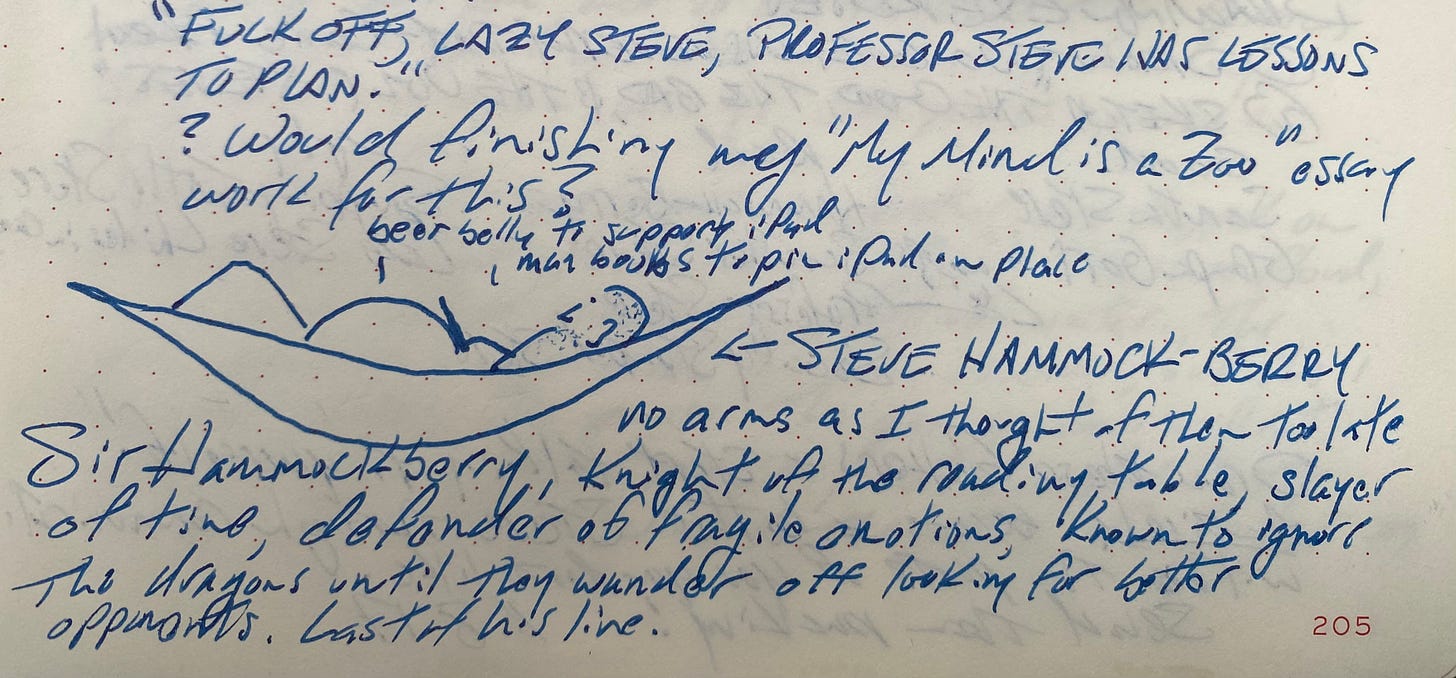 "FUCK OFF, LAZY STEVE, PROFESSOR STEVE HAS LESSONS
TO PLAN."
? Would finishing my "My Mind is a Zoo" essay
work for this?
beer belly to support iPad
man boobs to pin iPad in place
← STEVE HAMMOCK-BERRY
no arms as I thought of them too late
Sir Hammockberry, Knight of the reading table, slayer
of time, defender of fragile emotions, known to ignore
the dragons until they wander off looking for better
opponents. Last of his line.
205